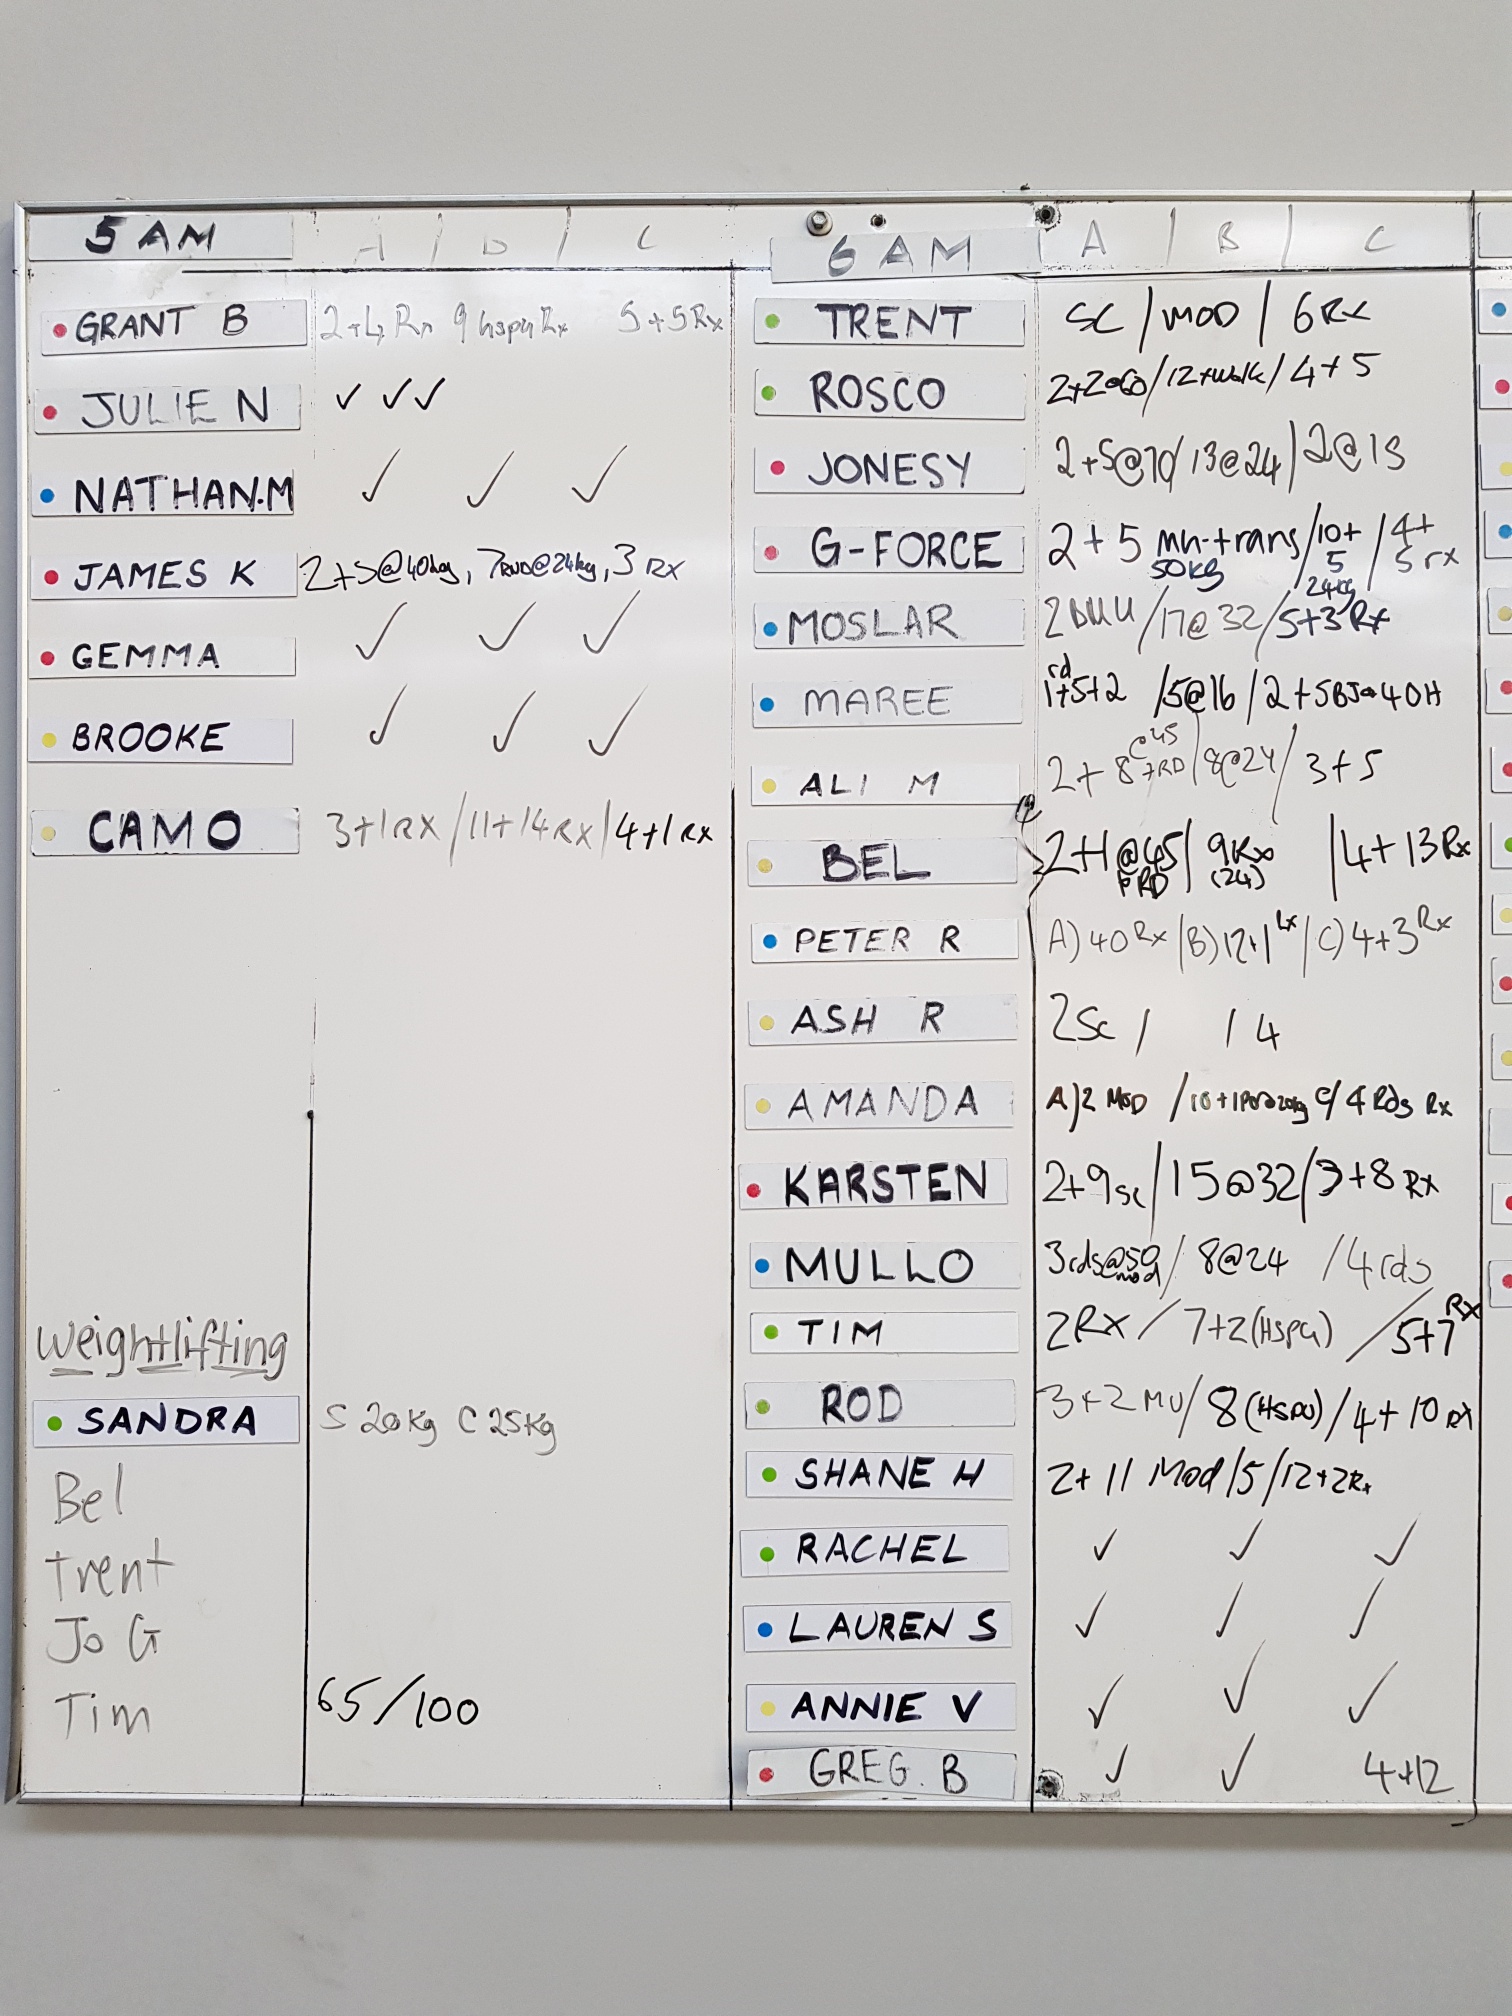 5 AM A / B / C
GRANT B 2+4 Rx 9 hspu Rx 5+5Rx
JULIE N ✓ ✓ ✓
NATHAN.M ✓ ✓ ✓
JAMES K 2+5@40kg, 7RND@24kg, 3 RX
GEMMA ✓ ✓ ✓
BROOKE ✓ ✓ ✓
CAMO 3+1 RX / 11+14 RX / 4+1 RX
Weightlifting
SANDRA S 20Kg C 25Kg
Bel
Trent
Jo G
Tim 65/100
6 AM A / B / C
TRENT SC / MOD / 6 RX
ROSCO 2+2@60 / 12+Walk / 4+5
JONESY 2+5@70 / 13@24 / 2@15
G-FORCE 2+5 mu-trans / 10+ / 4+
50kg 5 5 rx
24kg
MOSLAR 2 BMU / 17@32 / 5+3 Rx
rd
MAREE 1+5+2 / 5@16 / 2+5BJ@40H
@45
ALI M 2+8 +RD / 8@24 / 3+5
BEL 2+1@45 / 9Rx / 4+13 Rx
RD (24)
PETER R A) 40 Rx / B) 12+1 / C) 4+3 Rx
ASH R 2Sc / / 4
AMANDA A) 2 MOD / 10+1 20kg C/ 4 Rds Rx
KARSTEN 2+9 sc / 15@32 / 3+8 RX
MULLO 3rds@50 / 8@24 / 4rds
mod
TIM 2RX / 7+2 (HSPU) / 5+7 RX
ROD 3+2 MU / 8 (HSPU) / 4+10 RX
SHANE H 2+11 Mod / 5 / 12+2Rx
RACHEL ✓ ✓ ✓
LAUREN S ✓ ✓ ✓
ANNIE V ✓ ✓ ✓
GREG. B ✓ ✓ 4+12